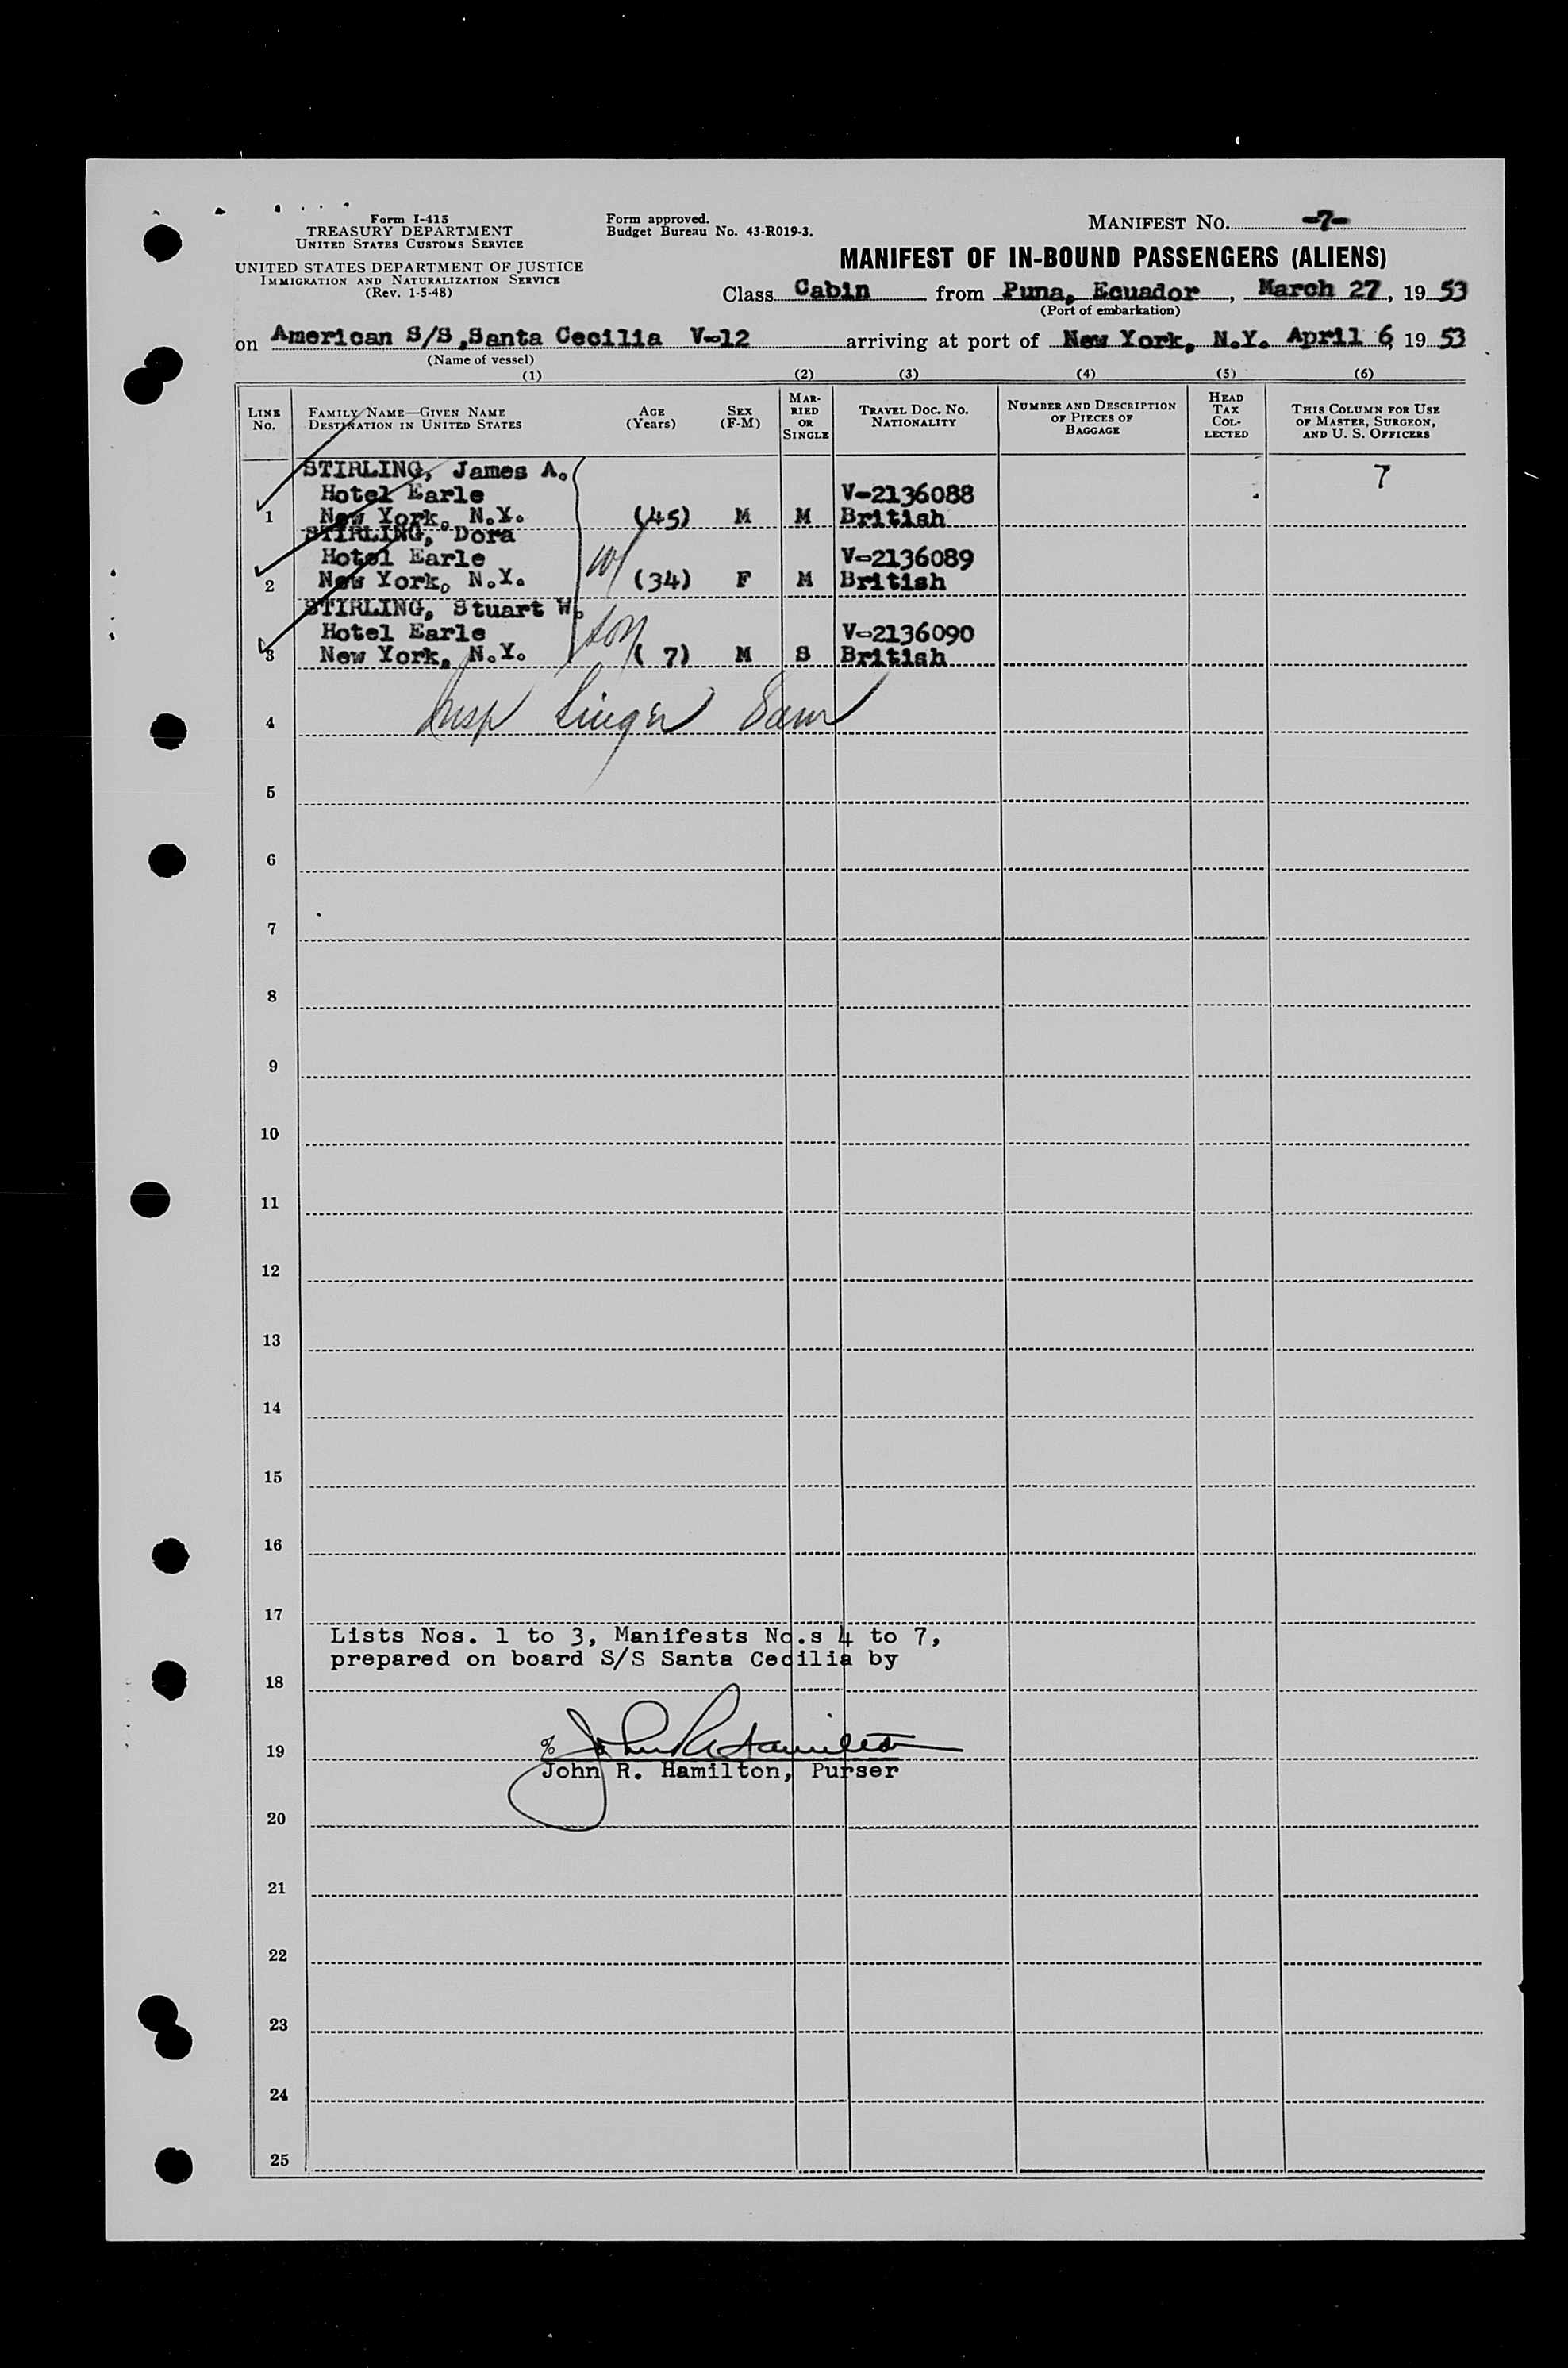 Form I-415
TREASURY DEPARTMENT
UNITED STATES CUSTOMS SERVICE
UNITED STATES DEPARTMENT OF JUSTICE
IMMIGRATION AND NATURALIZATION SERVICE
(Rev. 1-5-48)
Form approved.
Budget Bureau No. 43-R019-3.
MANIFEST NO. -7-
MANIFEST OF IN-BOUND PASSENGERS (ALIENS)
Class Cabin from Puna, Ecuador, March 27, 19 53
(Port of embarkation)
on American S/S, Santa Cecilia V-12 arriving at port of New York, N.Y. April 6, 19 53
(Name of vessel)
(1) (2) (3) (4) (5) (6)
LINE No.
FAMILY NAME—GIVEN NAME
DESTINATION IN UNITED STATES
AGE (Years)
SEX (F-M)
MARRIED OR SINGLE
TRAVEL DOC. NO. NATIONALITY
NUMBER AND DESCRIPTION OF PIECES OF BAGGAGE
HEAD TAX COLLECTED
THIS COLUMN FOR USE OF MASTER, SURGEON, AND U. S. OFFICERS
STIRLING, James A. 7
Hotel Earle V-2136088
1 New York, N.Y. (45) M M British
STIRLING, Dora
Hotel Earle W/ V-2136089
2 New York, N.Y. (34) F M British
STIRLING, Stuart W.
Hotel Earle son V-2136090
3 New York, N.Y. ( 7) M S British
4 Insp
5
6
7
8
9
10
11
12
13
14
15
16
17
Lists Nos. 1 to 3, Manifests No.s 4 to 7,
prepared on board S/S Santa Cecilia by
18
19 % John R Hamilton
John R. Hamilton, Purser
20
21
22
23
24
25